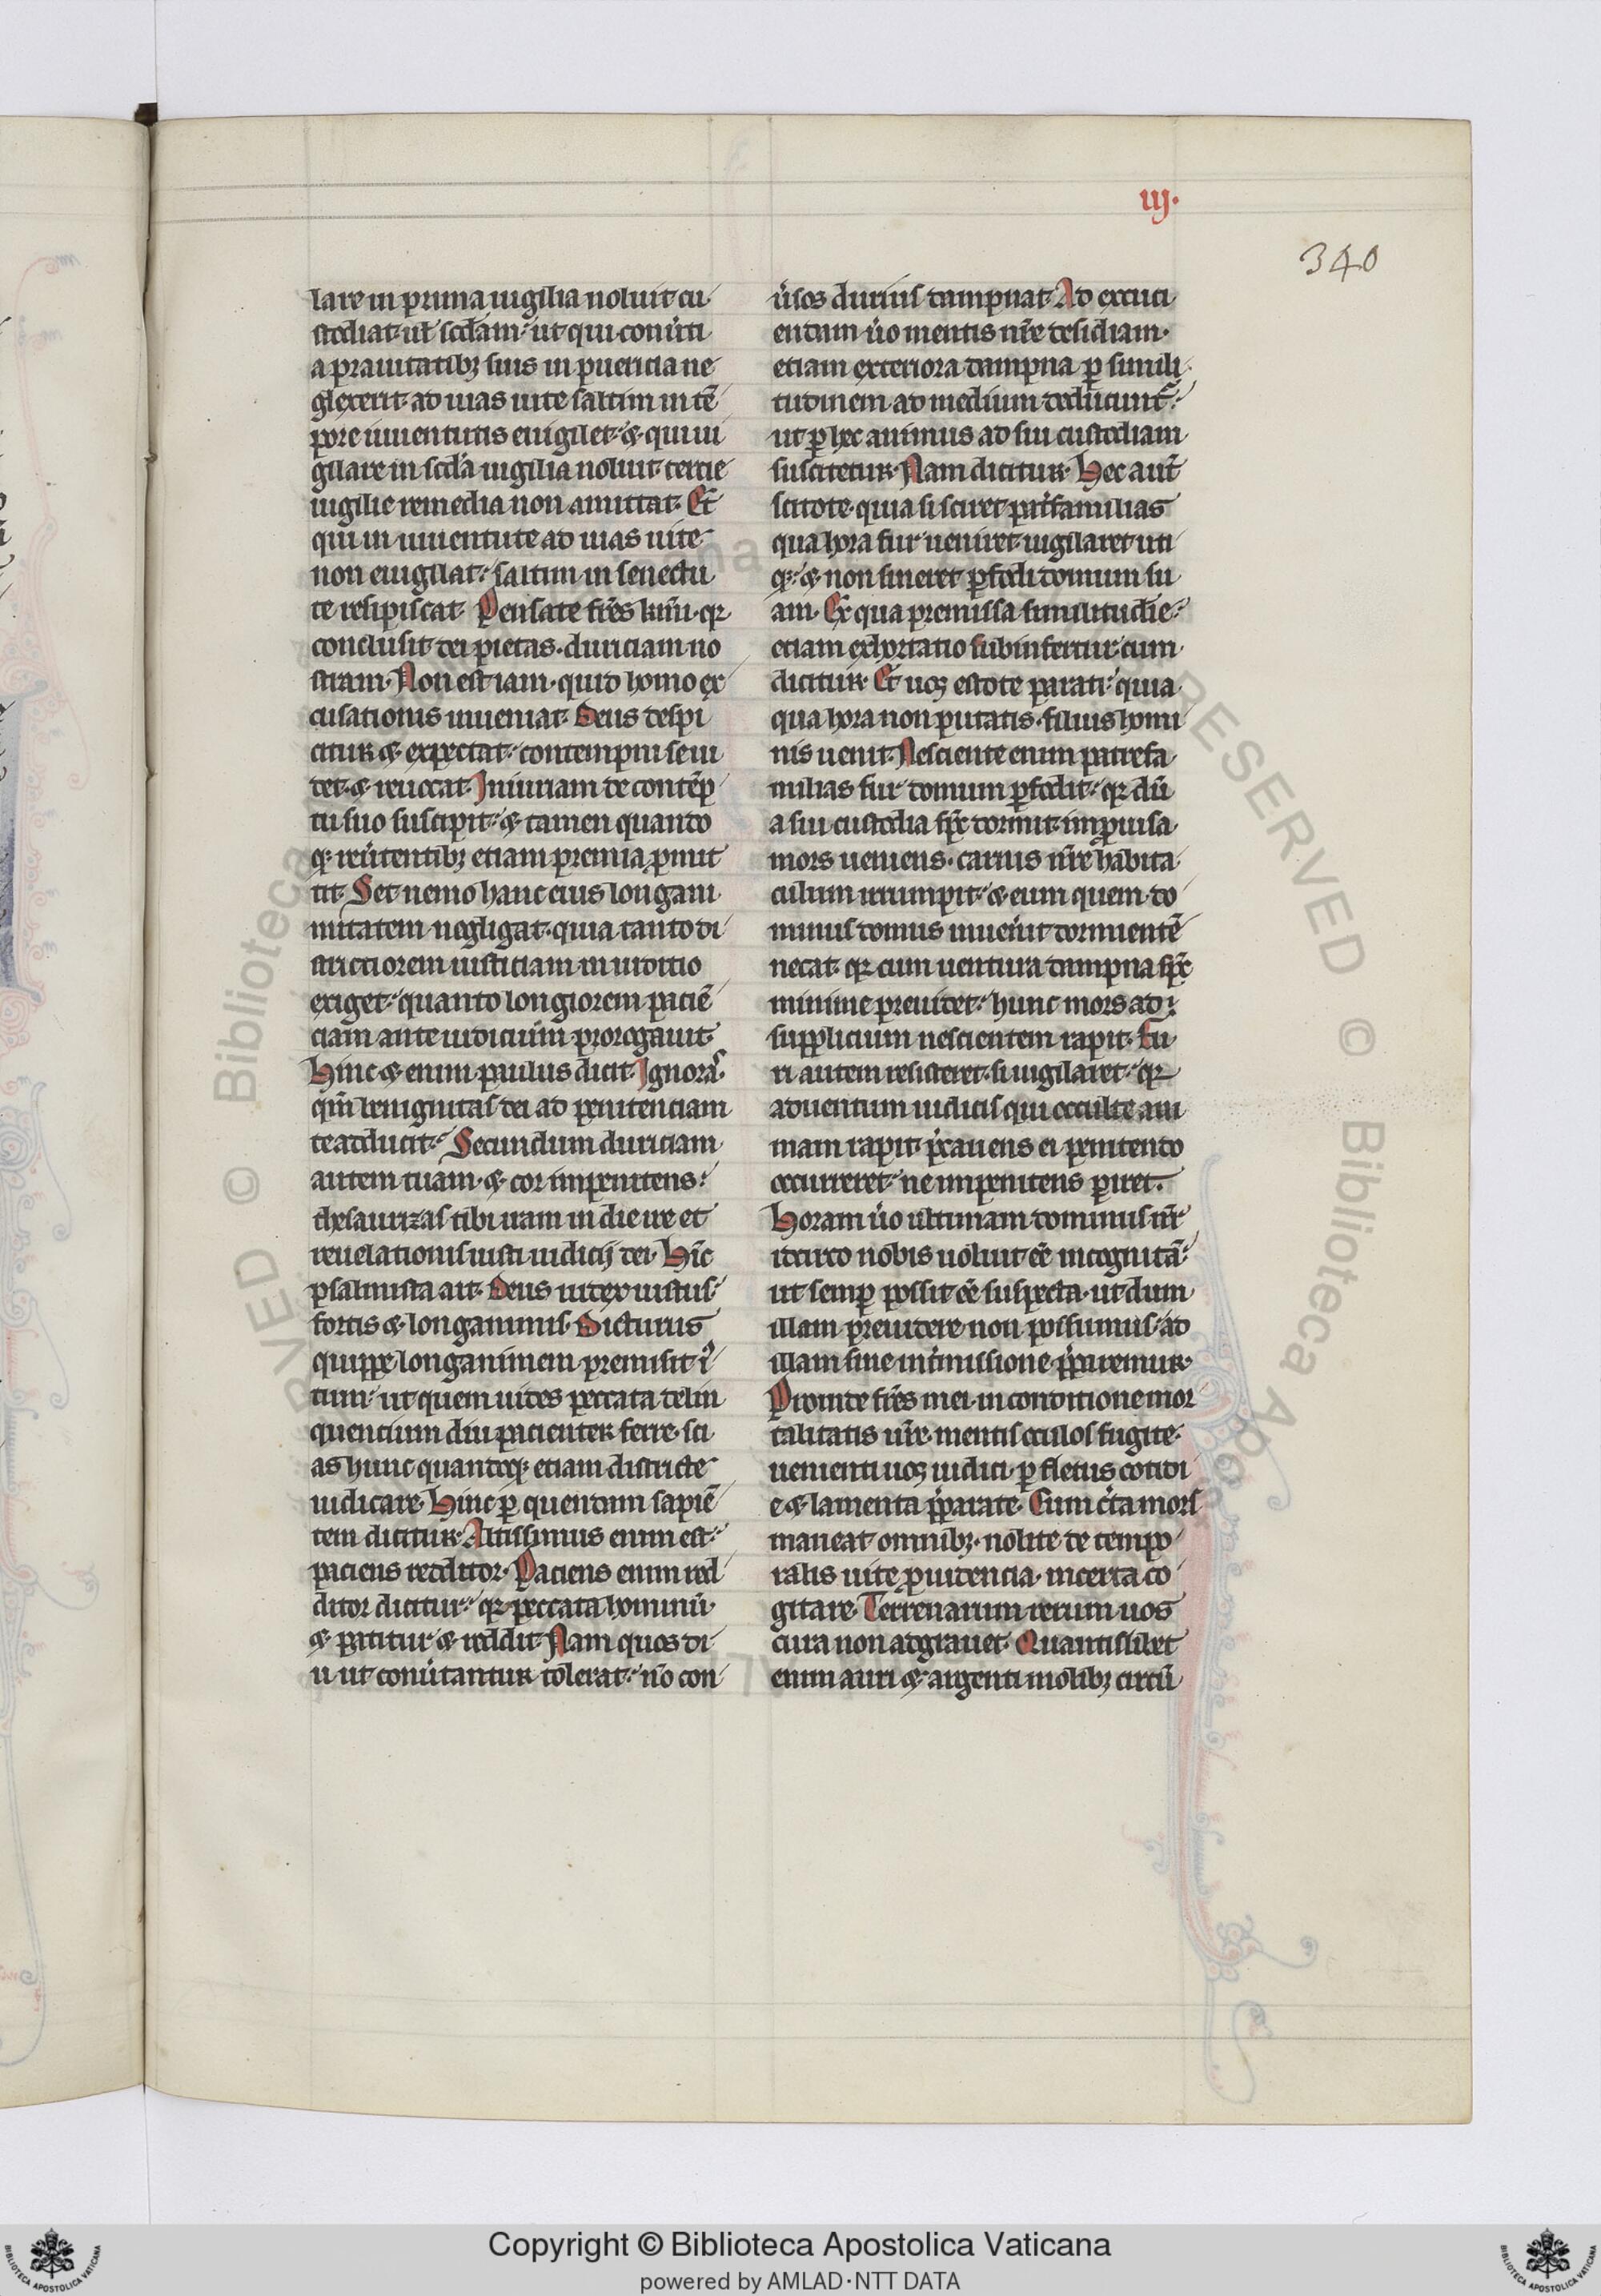 iij.
340
lare in prima uigilia noluit cu
stodiat ul̄ scđam. ut qui conu̓ti
a prauitatibꝫ suis in puericia ne
glexerit. ad uias uite saltim in tē
pore iuuentutis euigilet. ⁊ qui ui
gilare in scđa uigilia noluit. tercie
uigilie remedia non amittat. Et
qui in iuuentute ad uias uite
non euigilat. saltim in senectu
te resipiscat. Pensate frēs kmi. qr
conclusit dei pietas. duriciam no
stram. Non est iam. quid homo ex
cusationis inueniat. Deus despi
citur ⁊ expectat. contempni se ui
det. ⁊ reuocat. Iniuriam de contēp
tu suo suscipit. ⁊ tamen quando
qꝫ reu̓tentibꝫ etiam premia ꝓmit
tit. Set nemo hanc eius longani
mitatem negligat. quia tanto di
strictiorem iusticiam in iuditio
exiget. quanto longiorem paciē
ciam ante iudicium prorogauit.
Hinc ⁊ enim paulus dicit. Ignoras
qm̄ benignitas dei ad penitenciam
te adducit. Secundum duriciam
autem tuam. ⁊ cor impenitens.
thesaurizas tibi iram in die ire et
reuelationis iusti iudicij dei. Hīc
psalmista ait. Deus iudex iustus.
fortis ⁊ longanimis. Dicturus
quippe longanimem premisit iꝰ
tum. ut quem uides peccata delin
quentium diu pacienter ferre. sci
as hunc quandoqꝫ etiam districte
iudicare. Hinc ꝑ quendam sapiē
tem dicitur. Altissimus enim est.
paciens redditor. Paciens enim red
ditor dicitur. qr peccata hominū.
⁊ patitur ⁊ reddit. Nam quos di
u ut conu̓tantur tolerat. nō con
u̓sos durius dampnat. Ad excuci
endam u̓o mentis nr̄e desidiam.
etiam exteriora dampna ꝑ simili
tudinem ad medium deducunt̄.
ut ꝑ hec animus ad sui custodiam
suscitetur. Nam dicitur. Hec aut̄
scitote. quia si sciret pat̓familias
qua hora fur ueniret. uigilaret uti
qꝫ. ⁊ non sineret ꝑfodi domum su
am. Ex qua premissa similitudīe.
etiam exhortatio subinfertur. cum
dicitur. Et uos estote parati. quia
qua hora non putatis. filius homi
nis uenit. Nesciente enim patrefa
milias fur domum ꝑfodit. qr dū
a sui custodia sp̄c dormit. imꝓuisa
mors ueniens. carnis nr̄e habita
culum irrumpit. ⁊ eum quem do
minus domus inuen̓it dormientē
necat. qr cum uentura dampna sp̄c
minime preuidet. hunc mors ad
supplicium nescientem rapit. Fu
ri autem resisteret. si uigilaret. qr
aduentum iudicis qui occulte ani
mam rapit. p̄cauens ei penitendo
occurreret. ne impenitens ꝑiret.
Horam u̓o ultimam dominus nr̄
idcirco nobis uoluit eē incognitā.
ut semꝑ possit eē suspecta. ut dum
illam preuidere non possumus. ad
illam sine int̓missione p̄paremur.
Proinde frēs mei. in conditione mor
talitatis ur̄e. mentis oculos fugite.
uenienti uos iudici. ꝑ fletus cotidi
e ⁊ lamenta p̄parate. Cum c̓ta mors
maneat omnibꝫ. nolite de tempo
ralis uite ꝓuidencia. incerta co
gitare. Terrenarum rerum uos
cura non adgrauet. Quantislibet
enim auri ⁊ argenti molibꝫ circū
Copyright © Biblioteca Apostolica Vaticana
powered by AMLAD·NTT DATA